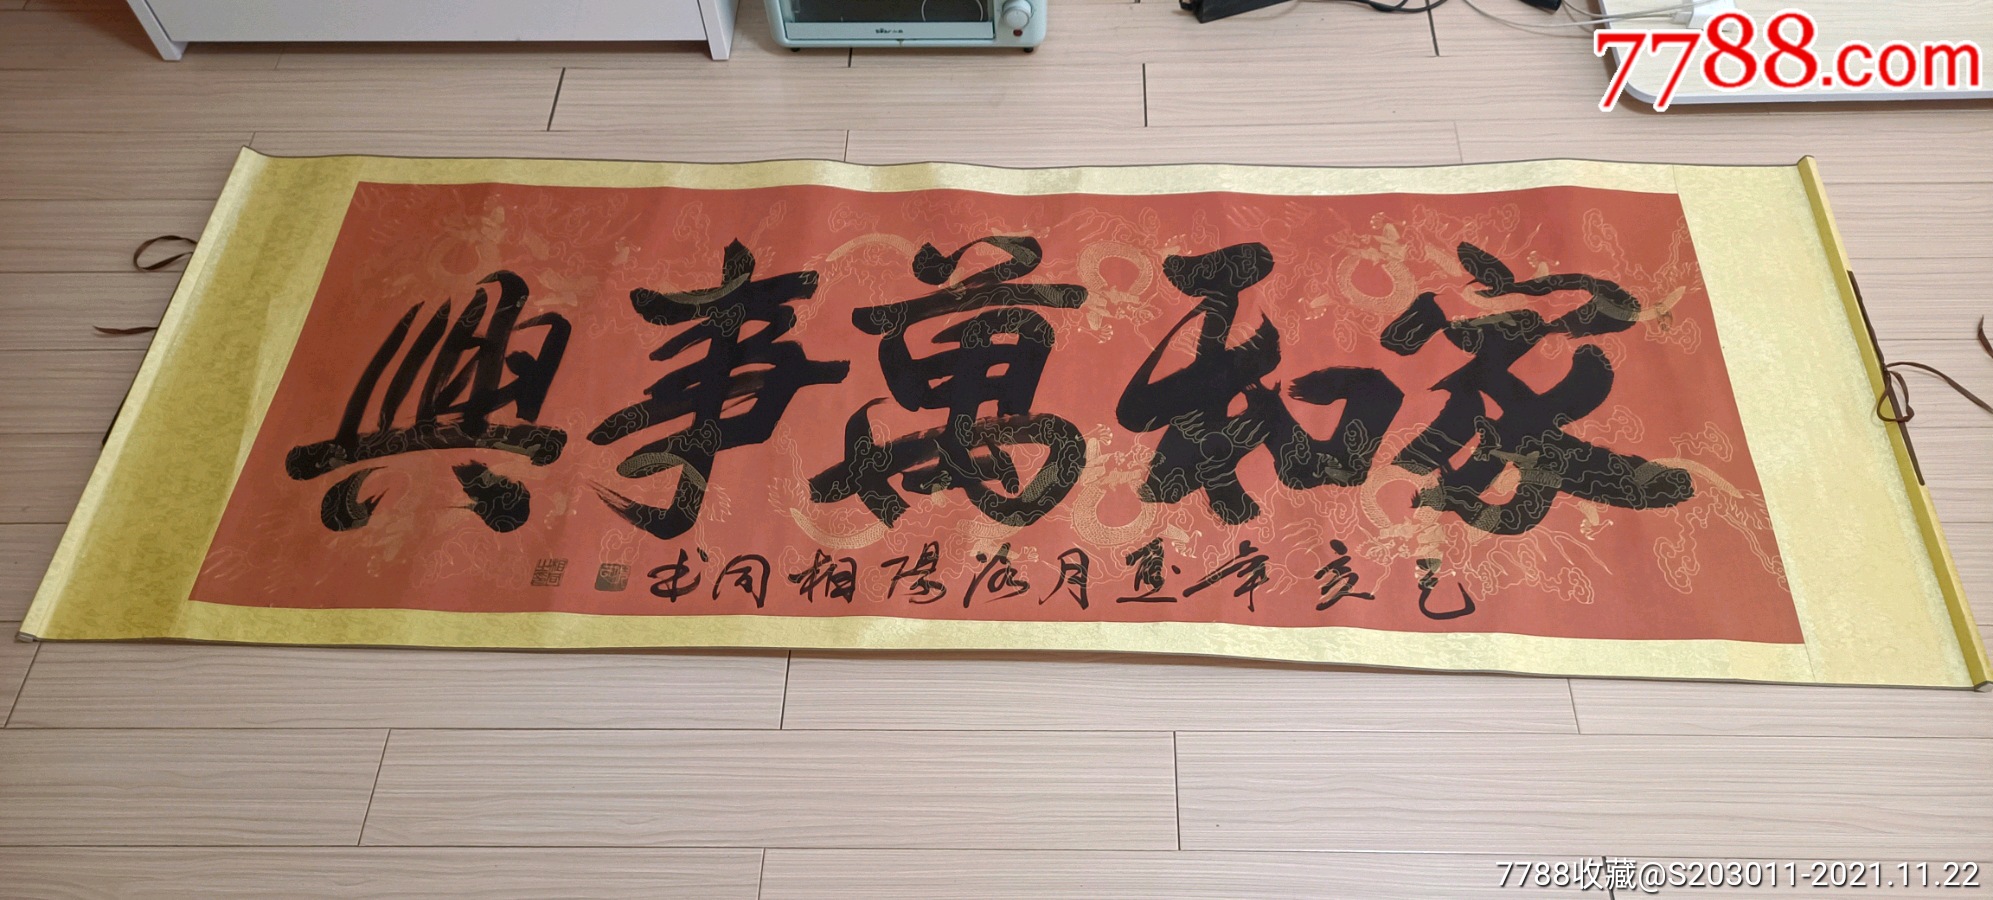 7788.com
家和萬事興
己亥年 月洛陽相同书
7788收藏@S203011-2021.11.22